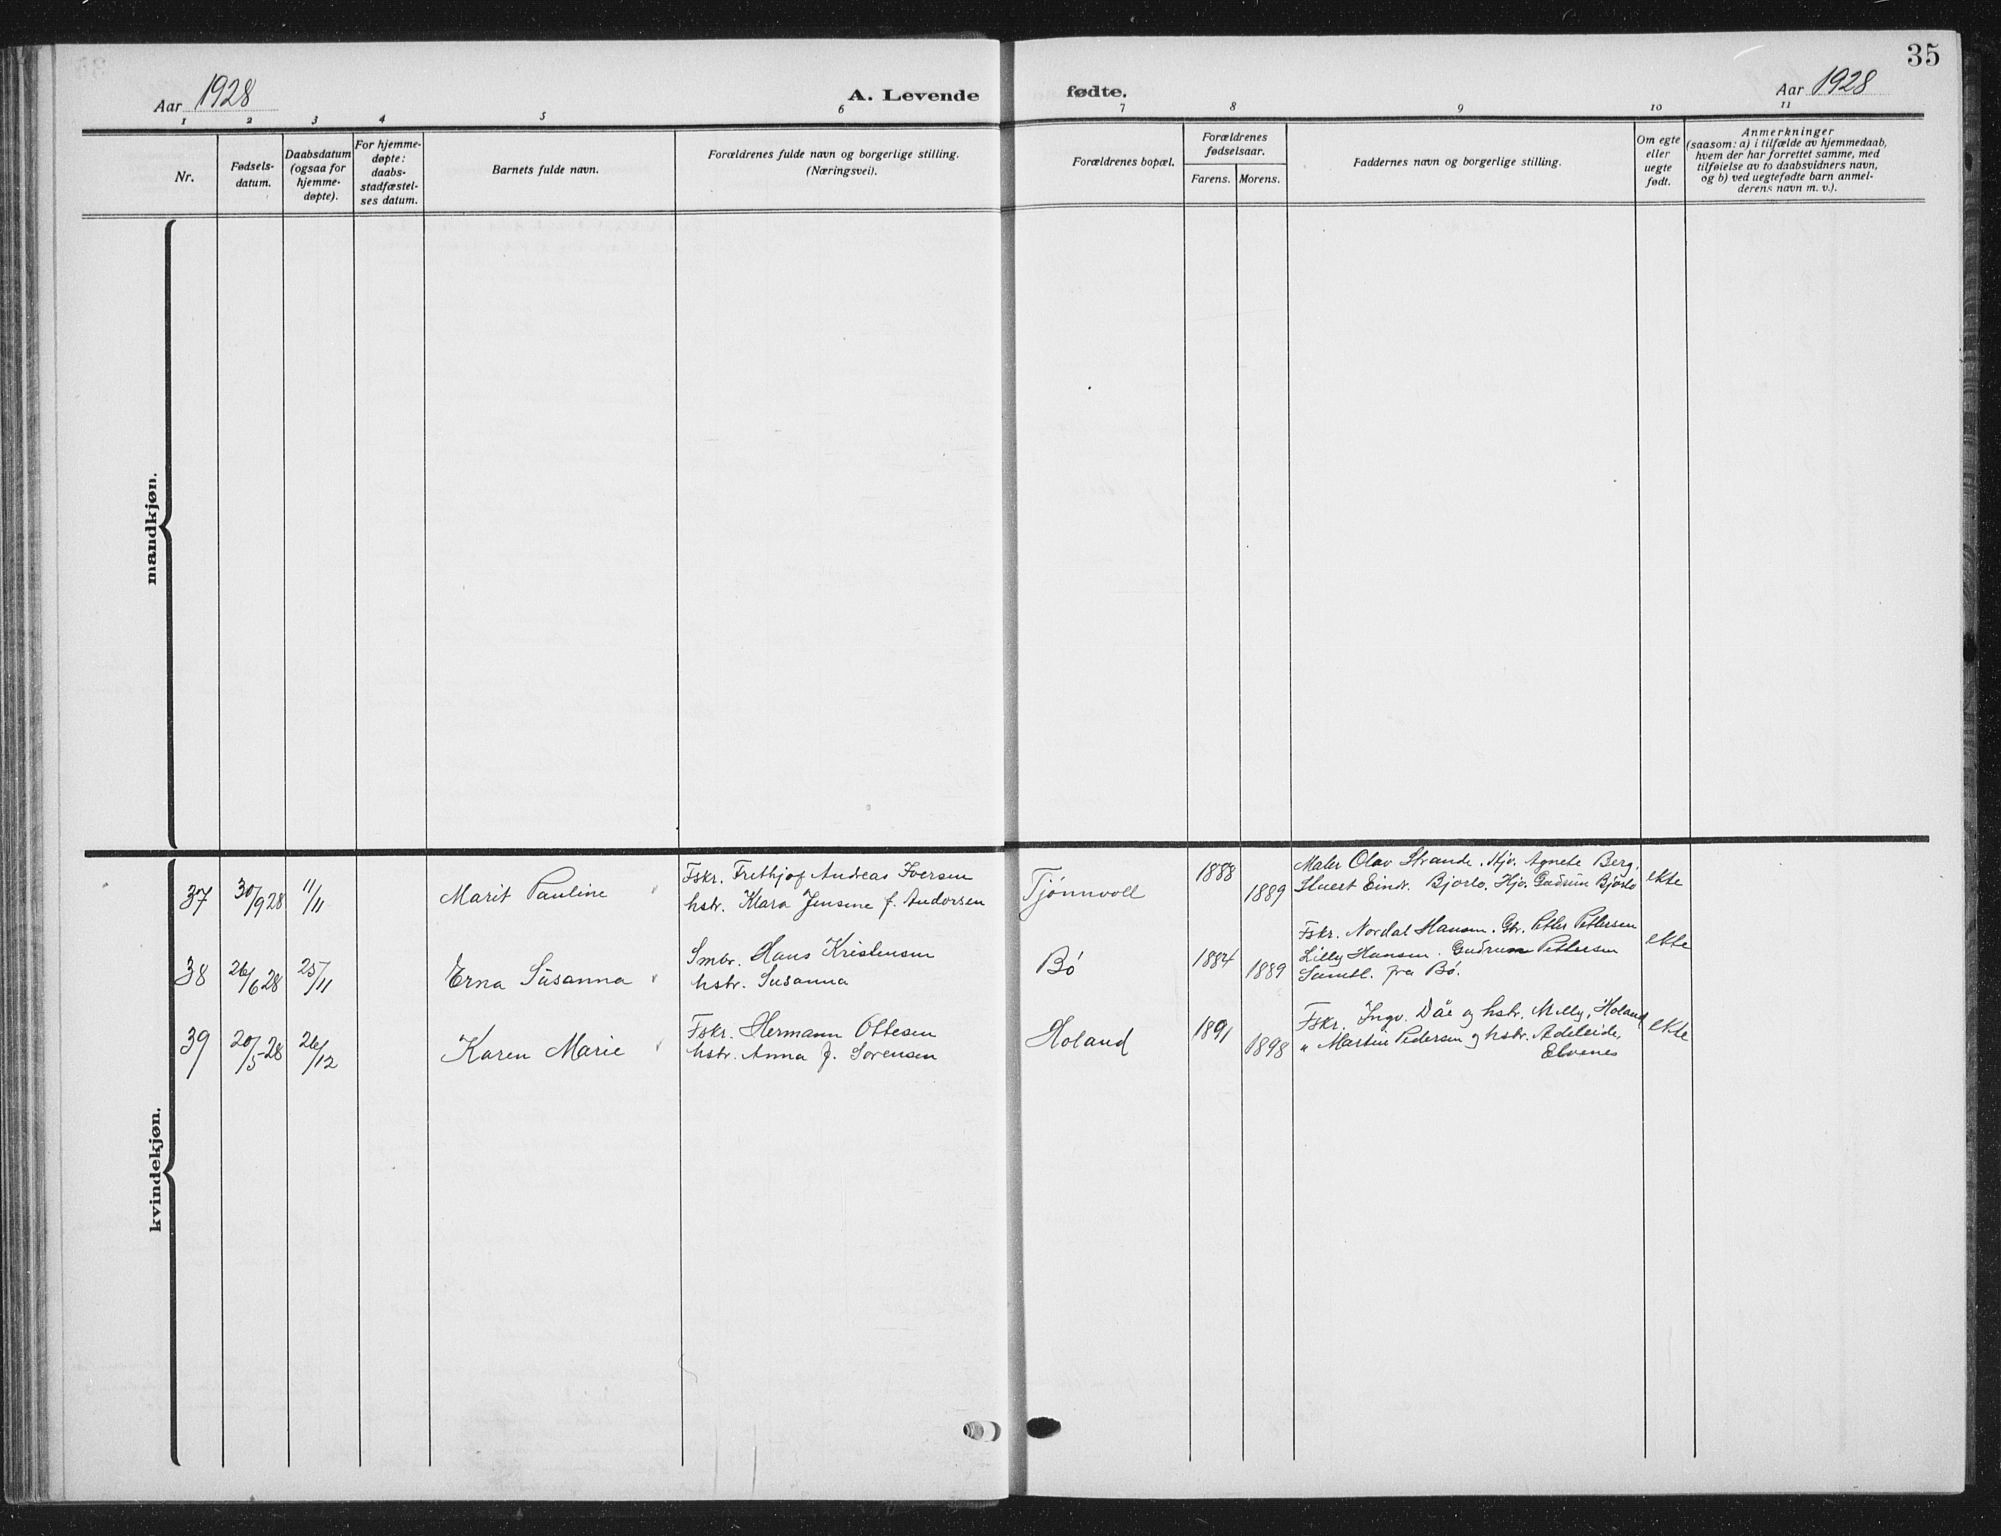 35
Aar 1928
A. Levende fødte.
Aar 1928
1 2 3 4 5 6 7 8 9 10 11
Nr.
Fødsels-
datum.
Daabsdatum
(ogsaa for
hjemme-
døpte).
For hjemme-
døpte:
daabs-
stadfæstel-
ses datum.
Barnets fulde navn.
Forældrenes fulde navn og borgerlige stilling.
(Næringsvei).
Forældrenes bopæl.
Forældrenes
fødselsaar.
Farens. Morens.
Faddernes navn og borgerlige stilling.
Om egte
eller
uegte
født.
Anmerkninger
(saasom: a) i tilfælde av hjemmedaab,
hvem der har forrettet samme, med
tilføielse av to daabsvidners navn,
og b) ved uegtefødte barn anmel-
derens navn m. v.).
mandkjøn.
kvindekjøn.
37
30/9 28
11/11
Marit Pauline
Fskr. Frethjof Andreas Iversen
hstr. Klara Jensine f. Andersen
Tjønnvoll
1888
1889
Maler Olav Strande. Hjv. Agnete Berg.
Eindr. Bjorlo. Hjv. Gudrun Bjørlo
ekte
38
26/6 28
25/11
Erna Susanna
Smbr. Hans Kristensen
hstr. Susanna
Bø
1884
1889
Fskr. Nordal Hansen. Gbr. Peter Pettersen
Lilly Hansen. Gudrun Pettersen
Samtl. fra Bø.
ekte
39
20/5-28
26/12
Karen Marie
Fskr. Hermann Ottesen
hstr. Anna f. Sørensen
Holand
1891
1898
Fskr. Ingv. Dåe og hstr. Milly, Holand
" Martin Pedersen og hstr. Adeleide,
Elvenes
ekte